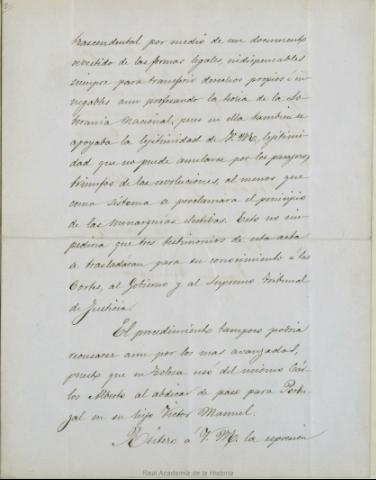 trascendental por medio de un documento
revestido de las formas legales, indispensables
siempre para transferir derechos propios é in-
negables aun profesando la teoría de la So-
beranía Nacional, pues en ella tambien se
apoyaba la legitimidad de V. M., legitimi-
dad que no puede anularse por los pasajeros
triunfos de las revoluciones, al menos que
como sistema se proclamara el principio
de las monarquías electivas. Esto no im-
pediria que tres testimonios de esta acta
se trasladáran para su conocimiento á las
Cortes, al Gobierno y al Supremo Tribunal
de Justicia.
El procedimiento tampoco podria
recusarse aun por los mas avanzados,
puesto que en Tolosa uso del mismo Cár-
los Alberto al abdicar de paso para Portu-
gal en su hijo Victor Manuel.
Reitero á V. M. la espresion
Real Academia de la Historia